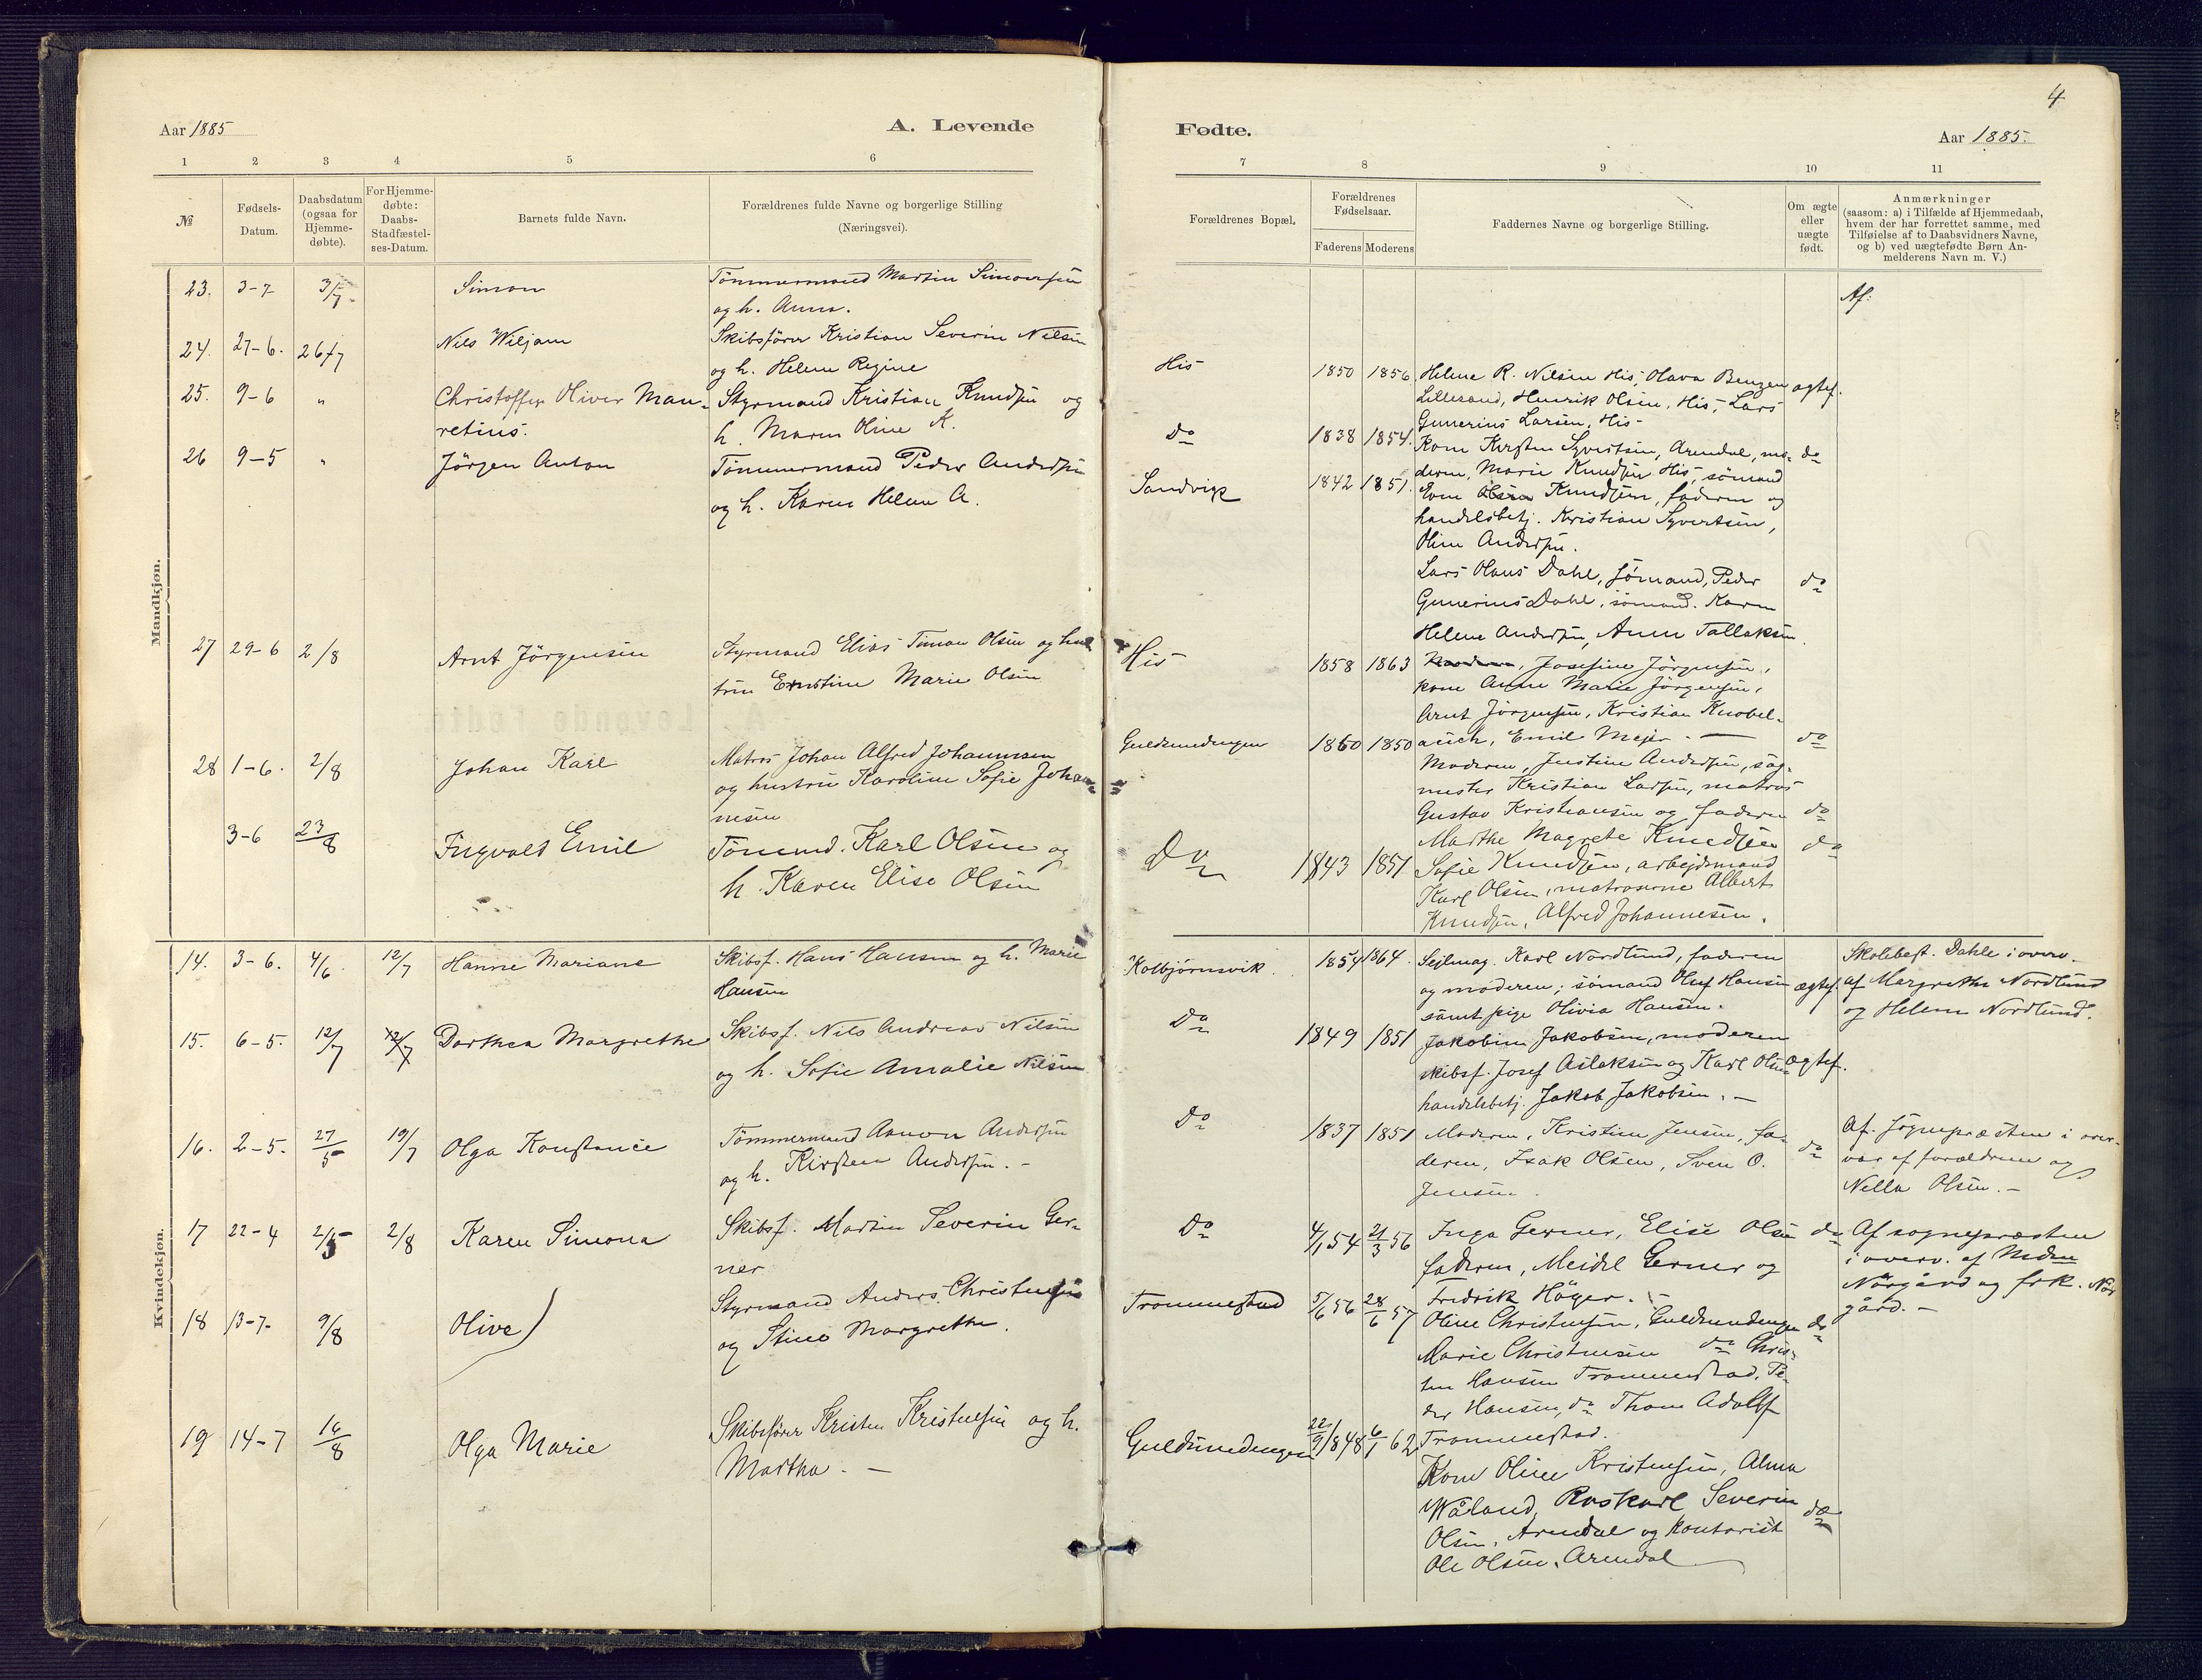 4
Aar 1885
A. Levende
Fødte.
Aar 1885.
1 2 3 4 5 6
7 8 9 10 11
№
Fødsels-
Datum.
Daabsdatum
(ogsaa for
Hjemme-
døbte).
For Hjemme-
døbte:
Daabs-
Stadfæstel-
ses-Datum.
Barnets fulde Navn.
Forældrenes fulde Navne og borgerlige Stilling
(Næringsvei).
Forældrenes Bopæl.
Forældrenes
Fødselsaar.
Faderens Moderens
Faddernes Navne og borgerlige Stilling.
Om ægte
eller
uægte
født.
Anmærkninger
(saasom: a) i Tilfælde af Hjemmedaab,
hvem der har forrettet samme, med
Tilføielse af to Daabsvidners Navne,
og b) ved uægtefødte Børn An-
melderens Navn m. V.)
Mandkjøn.
23. 3-7 3/7 Simon
Tømmermand Martin Simonsen
og h. Anna.
Af:
24. 27-6. 26/7 Nils Wiljam
Skibsfører Kristian Severin Nilsen
og h. Helene Regine
His 1850 1856
Helene R. Nilsen His, Olava Benzen
Lillesand, Henrik Olsen, His, Lars
Gunerius Larsen, His-
ægtef.
25. 9-6 " Christoffer Oliver Mau-
retius.
Styrmand Kristian Knudsen og
h. Maren Oline K.
Do 1838 1854.
Kone Kirsten Syvertsen, Arendal, mo-
deren, Marie Knudsen His, sømand
Even Knudsen, faderen og
handelsbetj. Kristian Syvertsen,
Oline Andersen.
do
26 9-5 " Jörgen Anton
Tømmermand Peder Andersen
og h. Karen Helene A.
Sandvigk 1842 1851.
Lars Olaus Dahl, sømand, Peder
Gunerius Dahl, sømand. Karen
Helene Andersen, Anne Tallaksen.
do
27 29-6 2/8 Arnt Jörgensen
Styrmand Elias Timan Olsen og hus
true Ernstine Marie Olsen
His 1858 1863
Moderen, Josefine Jörgensen,
kone Anne Marie Jörgensen,
Arnt Jörgensen, Kristian Knobel-
auch, Emil Mejer. —
do
28 1-6. 2/8 Johan Karl
Matros Johan Alfred Johannessen
og hustru Karoline Sofie Johan
nesen
Guldsmedengen 1860 1850
Moderen, Justine Andersen, sag-
mester Kristian Larsen, matros
Gustav Kristiansen og faderen
do
3-6 23/8 Ingvald Emil
Tømmd. Karl Olsen og
h. Karen Elise Olsen
Do 1843 1851
Marthe Magrete Knudsen
Sofie Knudsen, arbejdsmand
Karl Olsen, matroserne Albert
Knudsen, Alfred Johannesen.
do
Kvindekjøn.
14. 3-6. 4/6. 12/7 Hanne Mariane
Skibsf. Hans Hansen og h. Marie
Hansen
Kolbjørnsvik. 1854 1864.
Sejlmag. Karl Nordlund, faderen
og moderen; sømand Oluf Hansen
samt pige Olivia Hansen.
ægtef.
Skolebest. Dahle i overv.
af Margrethe Nordlund
og Helene Nordlund.
15. 6-5. 12/7 12/7 Dorthea Margrethe
Skibsf. Nils Andreas Nilsen
og h. Sofie Amalie Nilsen
Do 1849 1851
Jakobine Jakobsen, moderen
skibsf. Josef Aslaksen og Karl Olsen
handelsbetj. Jakob Jakobsen. —
ægtef.
16. 2-5. 27/5 19/7 Olga Konstance
Tømmermand Aanon Andersen
og h. Kirsten Andersen. -
Do 1837 1851
Moderen, Kristine Jensen, fa-
deren, Isak Olsen, Sven O.
Jensen.
do
Af. Sognepræsten i over-
vær af forældrene og
Nella Olsen. -
17 22-4 2/5 2/8 Karen Simona
Skibsf. Martin Severin Ger-
ner
Do 4/1 54 21/3 56
Inga Gerner, Elise Olsen
faderen, Meidel Gerner og
Fredrik Höyer. -
do
Af sognepræsten
i overv. af Mdm
Nörgård og frk. Nör
gård. -
18 13-7- 9/8 Olive
Styrmand Anders Christensen
og Stine Margrethe.
Trommestad 5/6 56 28/6 57
Oline Christensen, Guldsmedengen
Marie Christensen do Chris-
ten Hansen Trommestad, Pe-
der Hansen, do Thom Adolf
Trommestad.
do
19 14-7 16/8 Olga Marie
Skibsfører Kristen Kristensen og h.
Martha. —
Guldsmedengen 22/9 1848 6/1 62
Kone Oline Kristensen, Alma
Wåland, Severin
Olsen, Arendal og kontorist
Ole Olsen, Arendal
do